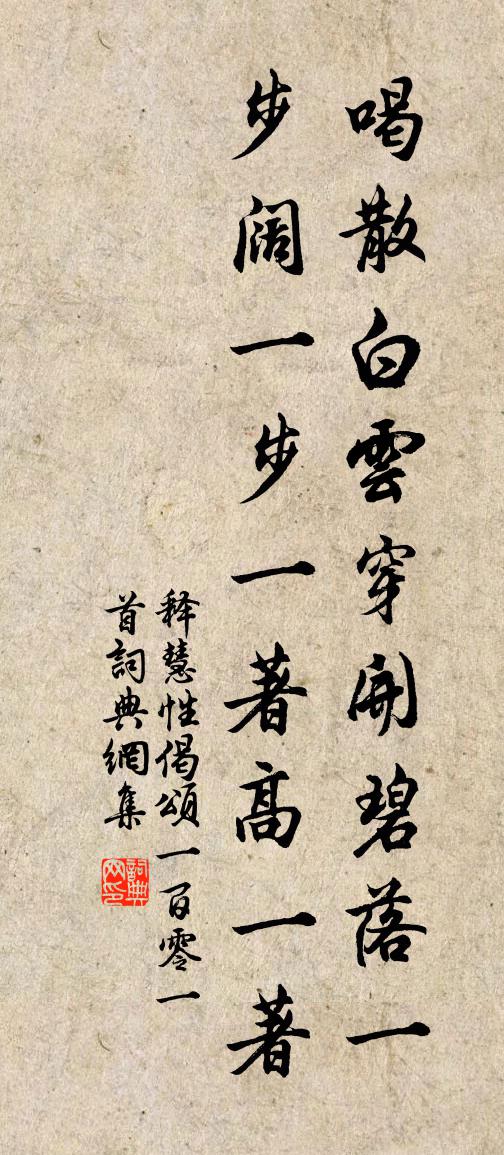 喝散白雲穿開碧落一
步阔一步一著高一著
释慧性偈頌一百零一
首詞典網集
詞典网印